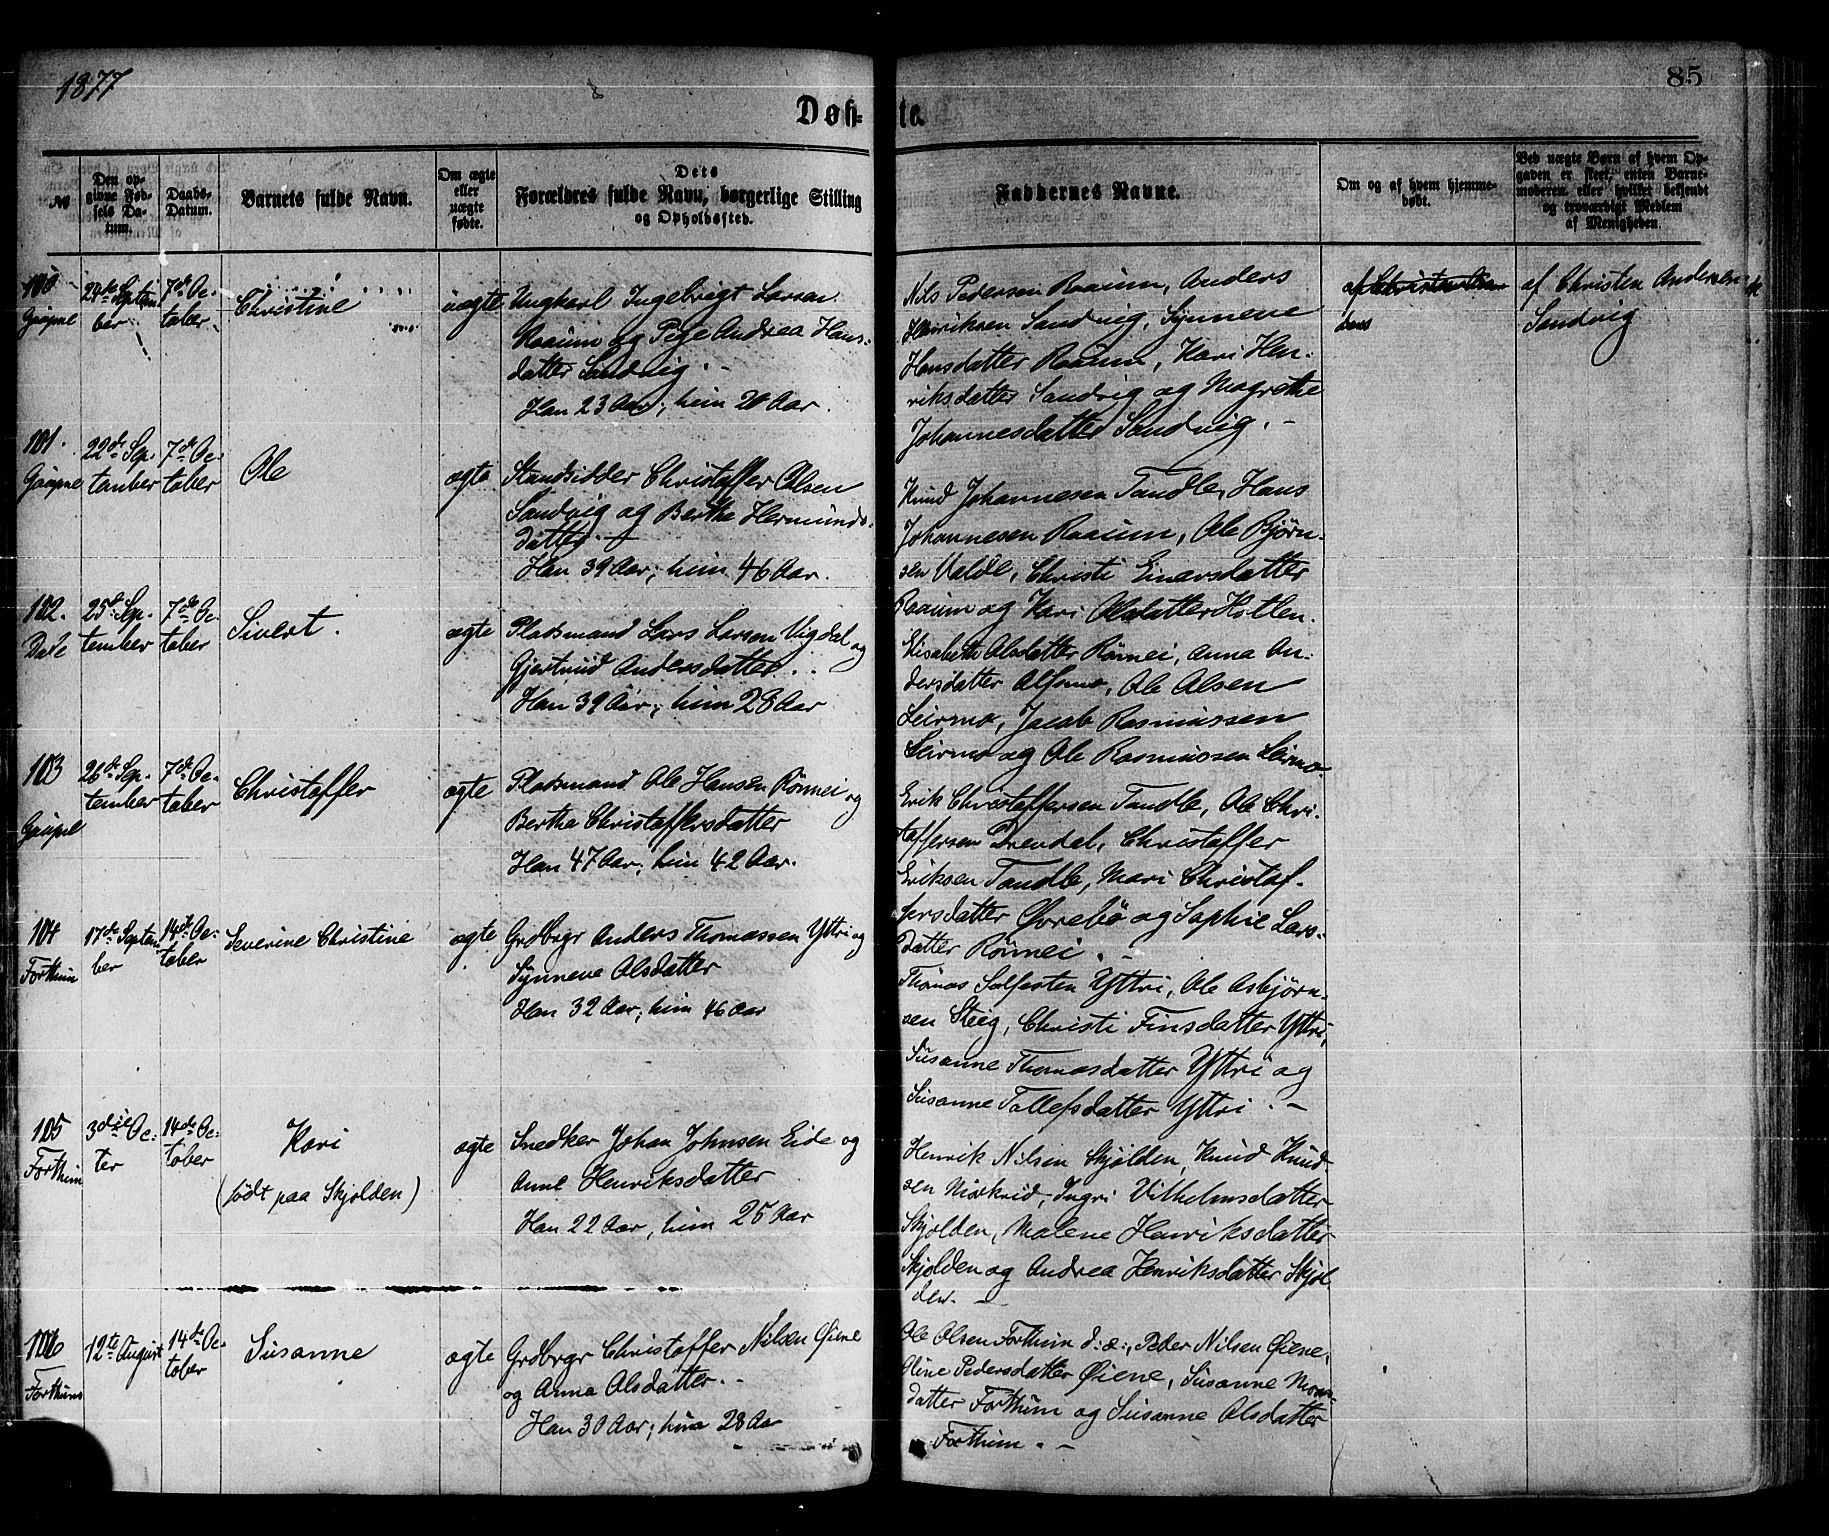 1877
85
Døb-
te.
№
Den op-
givne Fød-
sels Da-
tum.
Daabs-
Datum.
Barnets fulde Navn.
Om ægte
eller
uægte
fødte.
Dets
Forældres fulde Navn, borgerlige Stilling
og Opholdssted.
Faddernes Navne.
Om og af hvem hjemme-
døbt.
Ved uægte Børn af hvem Op-
gaven er skeet, enten Barne-
moderen eller hvilket bekjendt
og troværdigt Medlem
af Menigheden.
100
Gaupne
Septem
ber
7de Oc-
tober
Christine
uægte
Ungkarl Ingebrigt Larsen
Raaum og Pige Andrea Hans-
datter Sandvig. -
Han 23 Aar; hun 20 Aar.
Nils Pedersen Raaum, Anders
Henriksen Sandvig, Synneve
Hansdatter Raaum, Kari Hen-
riksdatter Sandvig og Magrethe
Johannesdatter Sandvig. -
af Christen Andersen
Sandvig
101.
Gaupne
22de Sep-
tember
7de Oc-
tober
Ole
ægte
Strandsidder Christoffer Olsen
Sandvig og Berthe Hermunds-
datter. -
Han 39 Aar; hun 46 Aar.
Knud Johannesen Tandle, Hans
Johannesen Raaum, Ole Bjørn-
sen Valde, Christi Einersdatter
Raaum og Kari Olsdatter
102.
Dale
25de Sep-
tember
7de Oc-
tober
Sivert.
ægte
Pladsmand Lars Larsen Vigdal og
Gjertrud Andersdatter. .
Han 39 Aar; hun 28 Aar
Elisabeth Olsdatter Rønnei, Anna An-
dersdatter Ole Olsen
Leirmo, Jacob Rasmussen
Leirmo og Ole Rasmussen Leirmo.
103
Gaupne
26de Sep-
tember
7de Oc-
tober
Christoffer
ægte
Pladsmand Ole Hansen Rønnei og
Berthe Christoffersdatter
Han 47 Aar; hun 42 Aar.
Erik Christoffersen Tandle, Ole Chri-
toffersen Drevdal, Christoffer
Eriksen Tandle, Mari Christof-
fersdatter Øvrebø og Sophie Lars-
datter Rønnei. -
104
Forthun
17de Septem
ber
14de Oc-
tober
Severine Christine
ægte
Grdbrgr Anders Thomassen Yttri og
Synneve Olsdatter
Han 32 Aar; hun 46 Aar
Thomas Solfesten Yttri, Ole Asbjørn-
sen Steig, Christi Finsdatter Yttri,
Susanne Thomasdatter Yttri og
Susanne Tollefsdatter Yttri. -
105
Forthun
3die Oc-
ter
14de Oc-
tober
Kari
(født paa Skjolden)
ægte
Snedker Johan Johnsen Eide og
Anne Henriksdatter
Han 22 Aar, hun 25 Aar
Henrik Nilsen Skjolden, Knud Knud
sen Mørkrid, Ingri Vilhelmsdatter
Skjolden, Malene Henriksdatter
Skjolden og Andrea Henriksdatter Skjol
den. -
106
Forthun
12te August
14de Oc-
tober
Susanne
ægte
Grdbrgr Christoffer Nilsen Øiene
og Anna Olsdatter. -
Han 30 Aar; hun 28 Aar
Ole Olsen Forthun d: æ:, Peder Nilsen Øiene,
Oline Pedersdatter Øiene, Susanne Mons-
datter Forthun og Susanne Olsdatter
Forthun. -